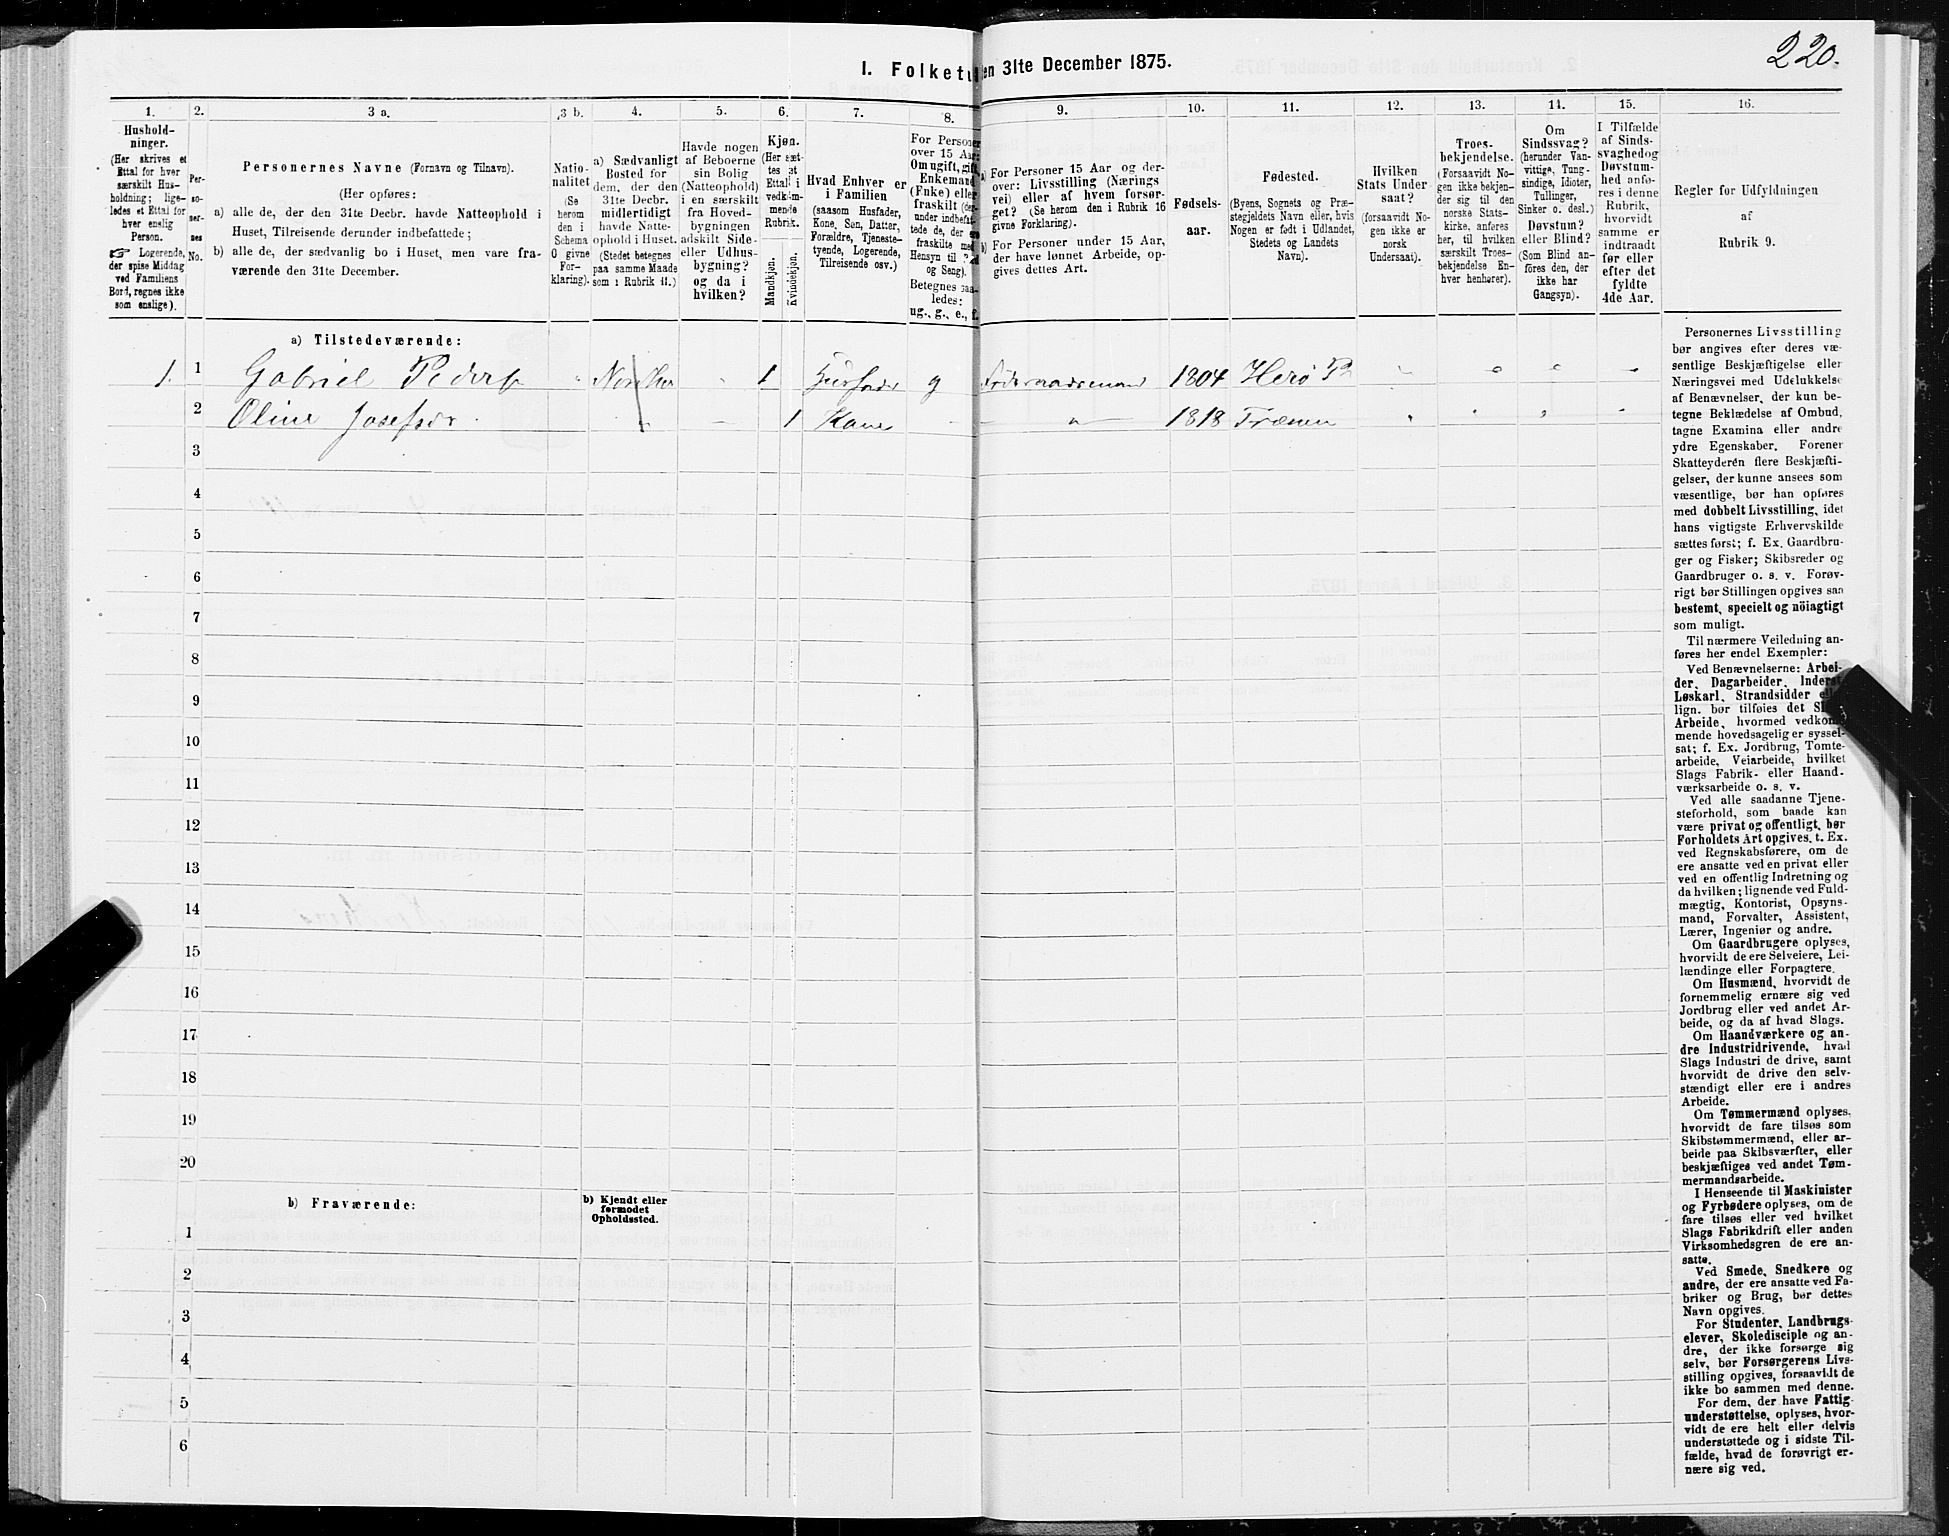 220.
I. Folketællingen 31te December 1875.
1.
2.
3 a.
3 b.
4.
5.
6.
7.
8.
9.
10.
11.
12.
13.
14.
15.
16.
Hushold-
ninger.
(Her skrives et
Ettal for hver
særskilt Hus-
holdning; lige-
ledes et Ettal for
hver enslig
Person.
☞ Logerende,
der spise Middag
ved Familiens
Bord, regnes ikke
som enslige).
Per-
so-
ner-
nes
No.
Personernes Navne (Fornavn og Tilnavn).
(Her opføres:
a) alle de, der den 31te Decbr. havde Natteophold i
Huset, Tilreisende derunder indbefattede;
b) alle de, der sædvanlig bo i Huset, men vare fra-
værende den 31te December.
Natio-
nalitet
(Se
herom
den i
Schema
O givne
For-
klaring).
a) Sædvanligt
Bosted for
dem, der den
31te Decbr.
midlertidigt
havde Natte-
ophold i Huset.
(Stedet betegnes
paa samme Maade
som i Rubrik 11.)
Havde nogen
af Beboerne
sin Bolig
(Natteophold)
i en særskilt
fra Hoved-
bygningen
adskilt Side-
eller Udhus-
bygning?
og da i
hvilken?
Kjøn.
(Her sæt-
tes et
Ettal i
vedkom-
mende
Rubrik.
Mandkjøn.
Kvindekjøn.
Hvad Enhver er
i Familien
(saasom Husfader,
Kone, Søn, Datter,
Forældre, Tjeneste-
tyende, Logerende,
Tilreisende osv.)
For Personer
over 15 Aar
Om ugift, gift,
Enkemand
(Enke) eller
fraskilt
Betegnes saa-
ledes:
ug., g., e., f.
a) For Personer 15 Aar og der-
over: Livsstilling (Nærings
vei) eller af hvem forsør-
get? (Se herom den i Rubrik 16
givne Forklaring).
b) For Personer under 15 Aar,
der have lønnet Arbeide, op-
gives dettes Art.
Fødsels-
aar.
Fødested.
(Byens, Sognets og Præ-
stegjeldets Navn eller, hvis
Nogen er født i Udlandet,
Stedets og Landets
Navn).
Hvilken
Stats Under-
saat?
(forsaavidt No-
gen ikke er
norsk
Undersaat).
Troes-
bekjendelse.
(Forsaavidt No-
gen ikke bekjen-
der sig til den
norske Stats-
kirke, anføres
her, til hvilken
særskilt Troes-
bekjendelse En-
hver henhører).
Om
Sindssvag?
(herunder Van-
vittige, Tung-
sindige, Idioter,
Tullinger,
Sinker o. desl.)
Døvstum?
eller Blind?
(Som Blind an-
føres den, der
ikke har
Gangsyn).
I Tilfælde
af Sinds-
svaghed og
Døvstum-
hed anfø-
res i denne
Rubrik,
hvorvidt
samme er
indtraadt
før eller
efter det
fyldte
4de Aar.
Regler for Udfyldningen
af
Rubrik 9.
a) Tilstedeværende:
1. 1 Gabriel Peders 1 g 1804 Herø
2 Oline 1 Kone 1818 Trænen
3
4
5
6
7
8
9
10
11
12
13
14
15
16
17
18
19
20
b) Fraværende:
b) Kjendt eller
formodet
Opholdssted.
1
2
3
4
5
6
Personernes Livsstilling
bør angives efter deres væ-
sentlige Beskjæftigelse eller
Næringsvei med Udelukkelse
af Benævnelser, der kun be-
tegne Beklædelse af Ombud,
tagne Examina eller andre
ydre Egenskaber. Forener
Skatteyderen flere Beskjæfti-
gelser, der kunne ansees som
væsentlige, bør han opføres
med dobbelt Livsstilling, idet
hans vigtigste Erhvervskilde
sættes først; f. Ex. Gaardbru-
ger og Fisker; Skibsreder og
Gaardbruger o. s. v. Forøv-
rigt bør Stillingen opgives saa
bestemt, specielt og nöiagtigt
som muligt.
Til nærmere Veiledning an-
føres her endel Exempler:
Ved Benævnelserne: Arbei-
der, Dagarbeider, Inderst,
Løskarl, Strandsidder eller
lign. bør tilføies det Slags
Arbeide, hvormed vedkom-
mende hovedsagelig er syssel-
sat; f. Ex. Jordbrug, Tomte-
arbeide, Veiarbeide, hvilket
Slags Fabrik- eller Haand-
værksarbeide o. s. v.
Ved alle saadanne Tjene-
steforhold, som baade kan
være privat og offentligt, bør
Forholdets Art opgives, t. Ex.
ved Regnskabsførere, om de
ere ansatte ved en privat eller
ved en offentlig Indretning og
da hvilken; lignende ved Fuld-
mægtig, Kontorist, Opsyns-
mand, Forvalter, Assistent,
Lærer, Ingeniør og andre.
Om Gaardbrugere oplyses,
hvorvidt de ere Selveiere, Lei-
lændinge eller Forpagtere.
Om Husmænd, hvorvidt de
fornemmelig ernære sig ved
Jordbrug eller ved andet Ar-
beide, og da af hvad Slags.
Om Haandværkere og an-
dre Industridrivende, hvad
Slags Industri de drive, samt
hvorvidt de drive den selv-
stændigt eller ere i andres
Arbeide.
Om Tømmermænd oplyses,
hvorvidt de fare tilsøs som
Skibstømmermænd, eller ar-
beide paa Skibsværfter, eller
beskjæftiges ved andet Tøm-
mermandsarbeide.
I Henseende til Maskinister
og Fyrbødere oplyses, om de
fare tilsøs eller ved hvilket
Slags Fabrikdrift eller anden
Virksomhedsgren de ere an-
satte.
Ved Smede, Snedkere og
andre, der ere ansatte ved Fa-
briker og Brug, bør dettes
Navn opgives.
For Studenter, Landbrugs-
elever, Skoledisciple og an-
dre, der ikke forsørge sig
selv, bør Forsørgerens Livs-
stilling opgives, forsaavidt de
ikke bo sammen med denne.
For dem, der have Fattig-
understøttelse, oplyses, hvor-
vidt de ere helt eller delvis
understøttede og i sidste Til-
fælde, hvad de forøvrigt er-
nære sig ved.